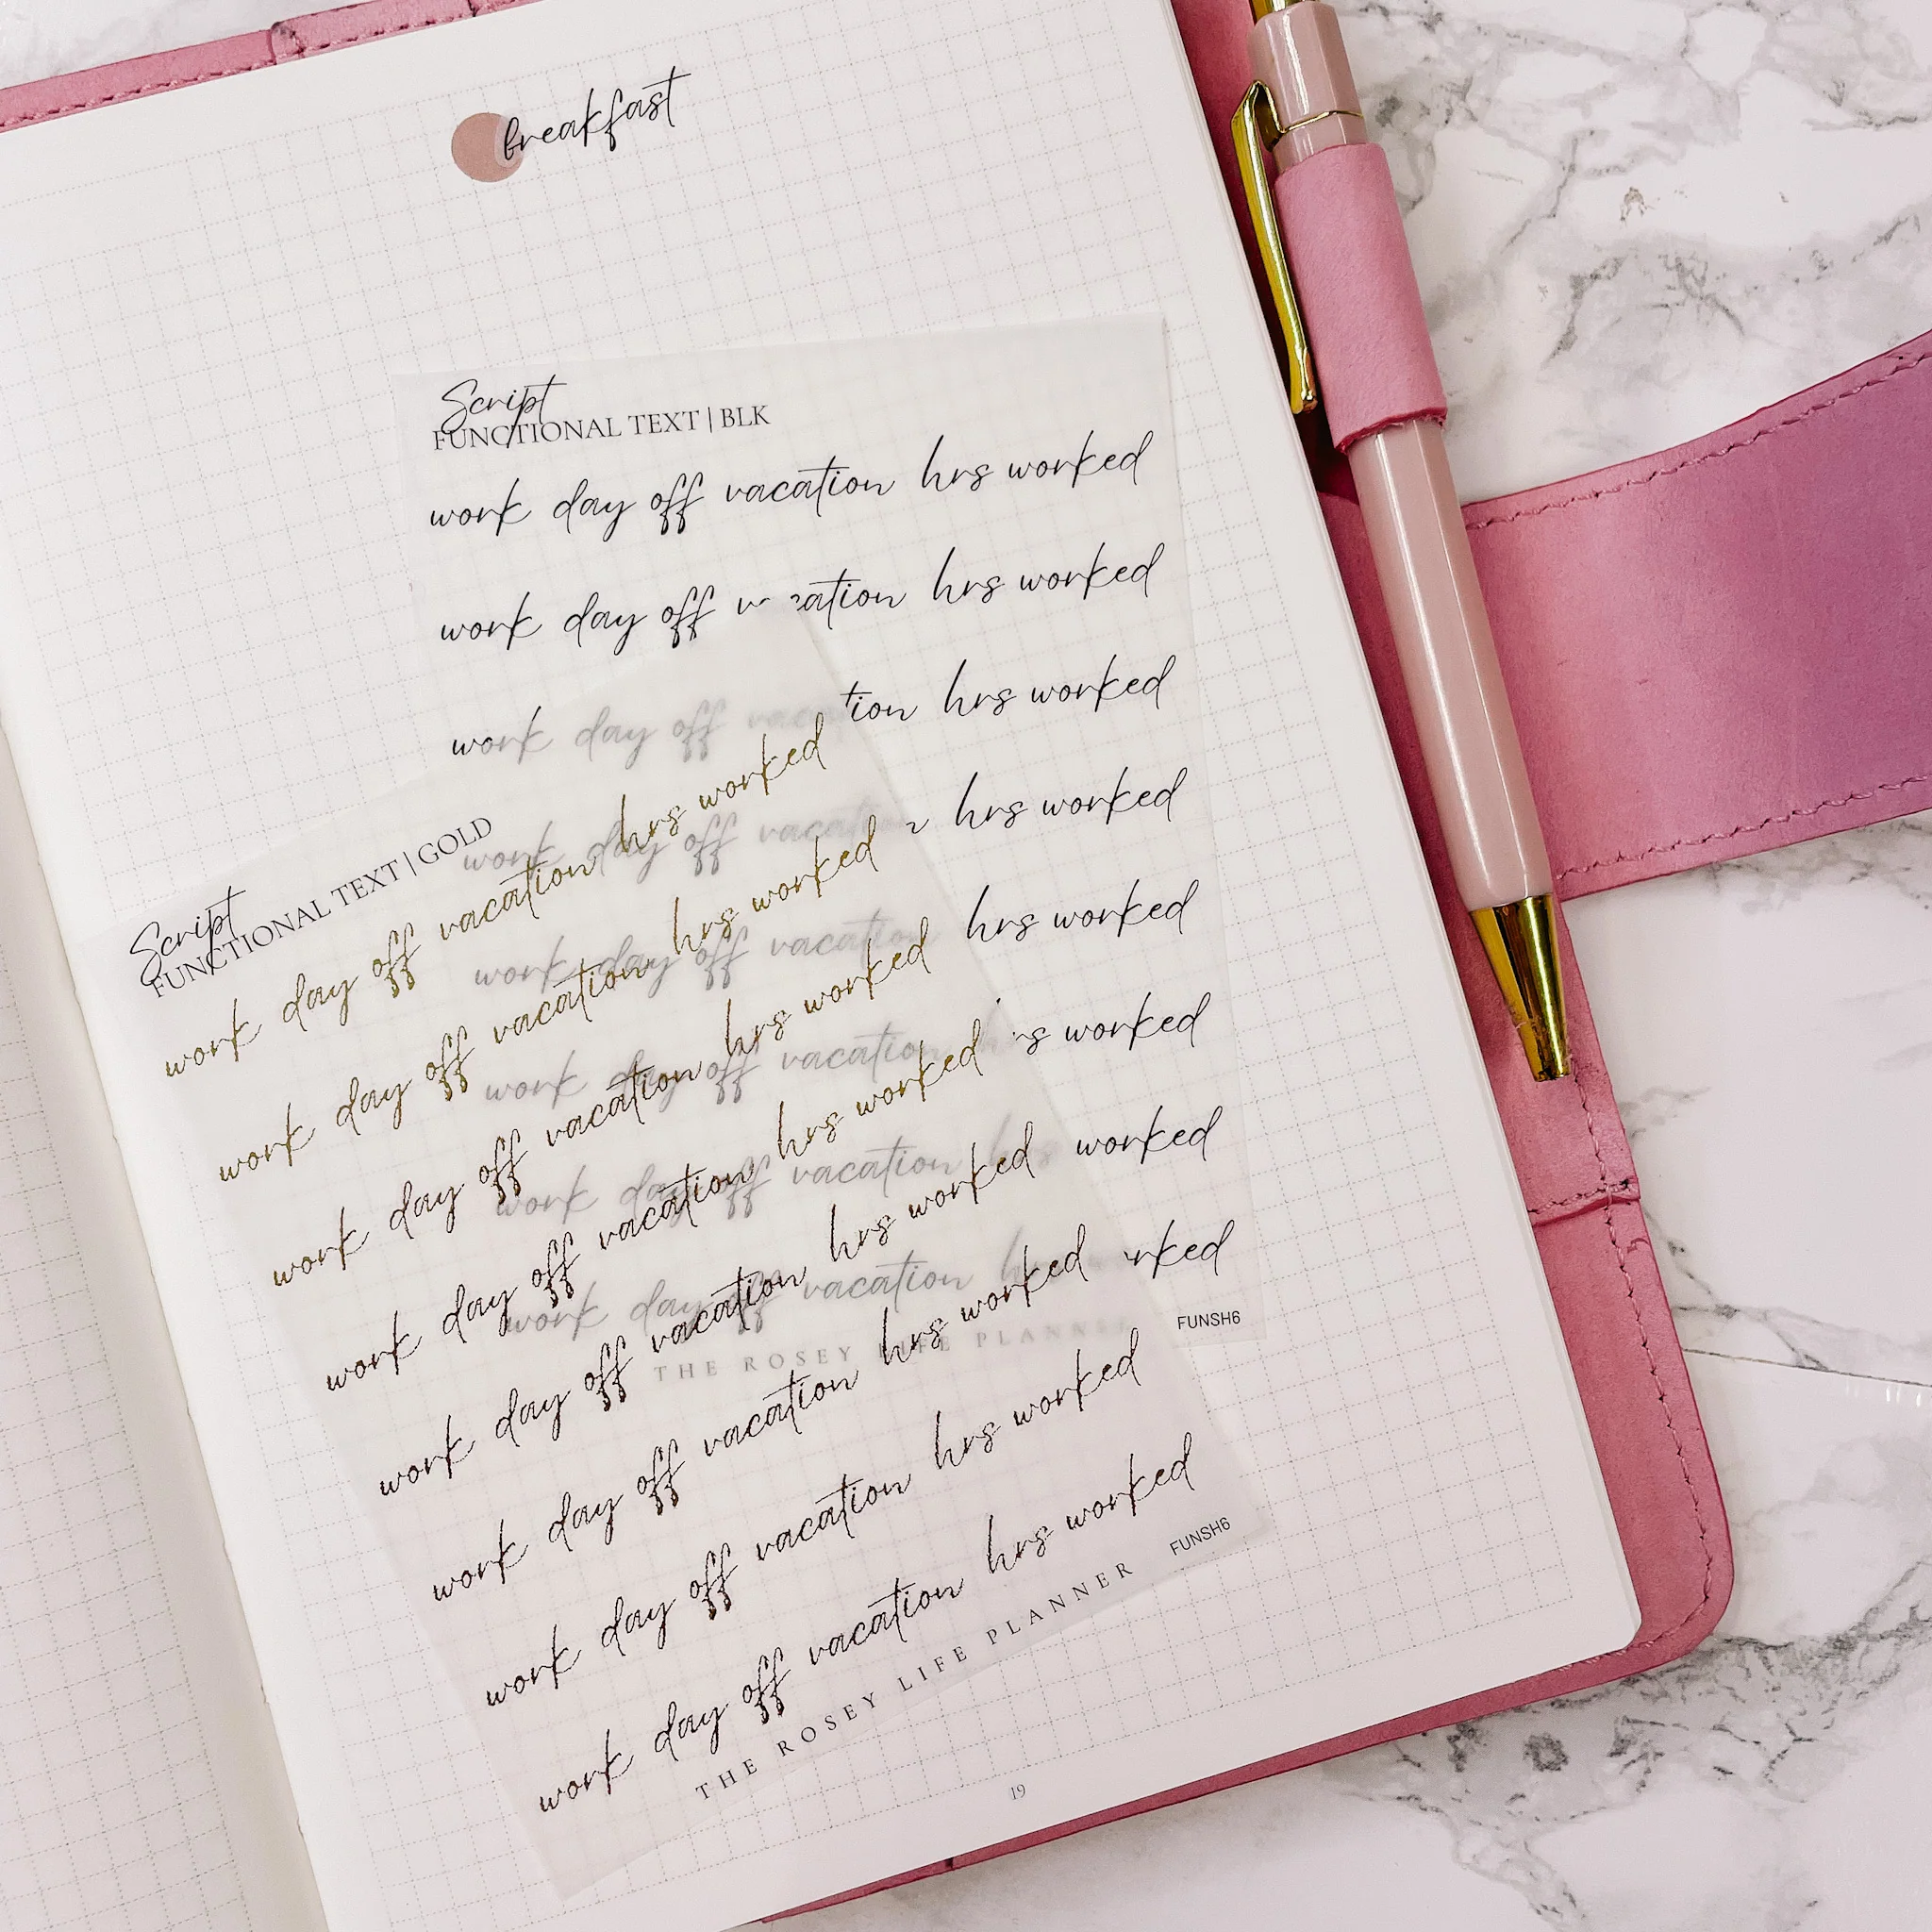 breakfast
Script
FUNCTIONAL TEXT | BLK
work day off vacation hrs worked
work day off hrs worked
work day off hrs worked
work day off vacation hrs worked
work day off vacation hrs worked
work day off vacation worked
work day off vacation worked
work day off vacation
THE ROSEY LIFE PLANNER
FUNSH6
Script
FUNCTIONAL TEXT | GOLD
work day off vacation hrs worked
work day off vacation hrs worked
work day off vacation hrs worked
work day off vacation hrs worked
work day off vacation hrs worked
work day off vacation hrs worked
work day off vacation hrs worked
work day off vacation hrs worked
FUNSH6
THE ROSEY LIFE PLANNER
19